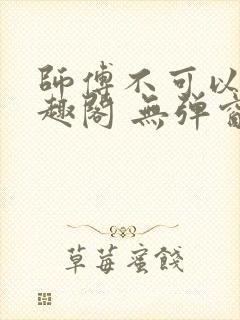 師傅不可以
趣閣 無彈
草莓蜜餞